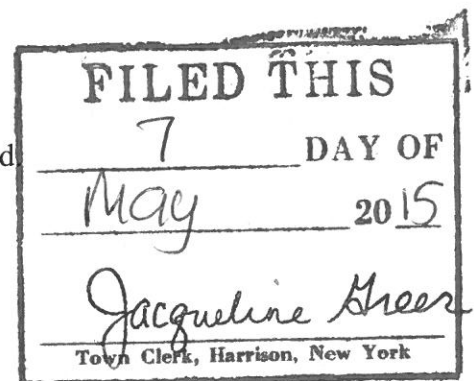 FILED THIS
d 7 DAY OF
May 2015
Jacqueline Greer
Town Clerk, Harrison, New York